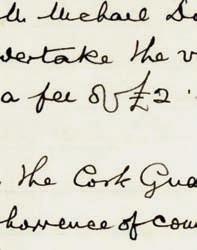 M. Michael Do
dertake the v
a fee of £2.
the Cork Gua
horrence of com